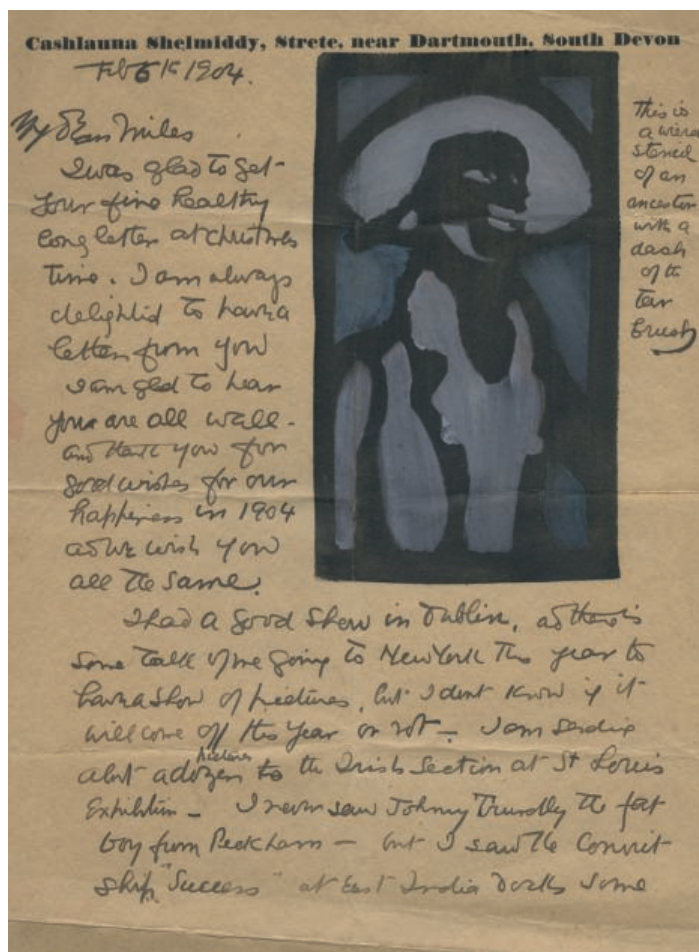 Cashlauna Shelmiddy, Strete, near Dartmouth, South Devon
Feb 5th 1904.
My Dear Miles
I was glad to get
your fine healthy
long letter at christmas
time. I am always
delighted to have a
letter from you
I am glad to hear
you are all well -
and thank you for
good wishes for our
happiness in 1904
as we wish you
all the same.
This is
a
stencil
of an
ancestor
with a
dash
of the
tar
brush
I had a good show in Dublin, and there is
some talk of me going to New York this year to
have a show of pictures, but I dont know if it
will come off this year or not - I am sending
about a dozen pictures to the Irish Section at St Louis
Exhibition - I never saw Johnny Trundly the fat
boy from Peckham - but I saw the Convict
ship "Success" at East India Docks some